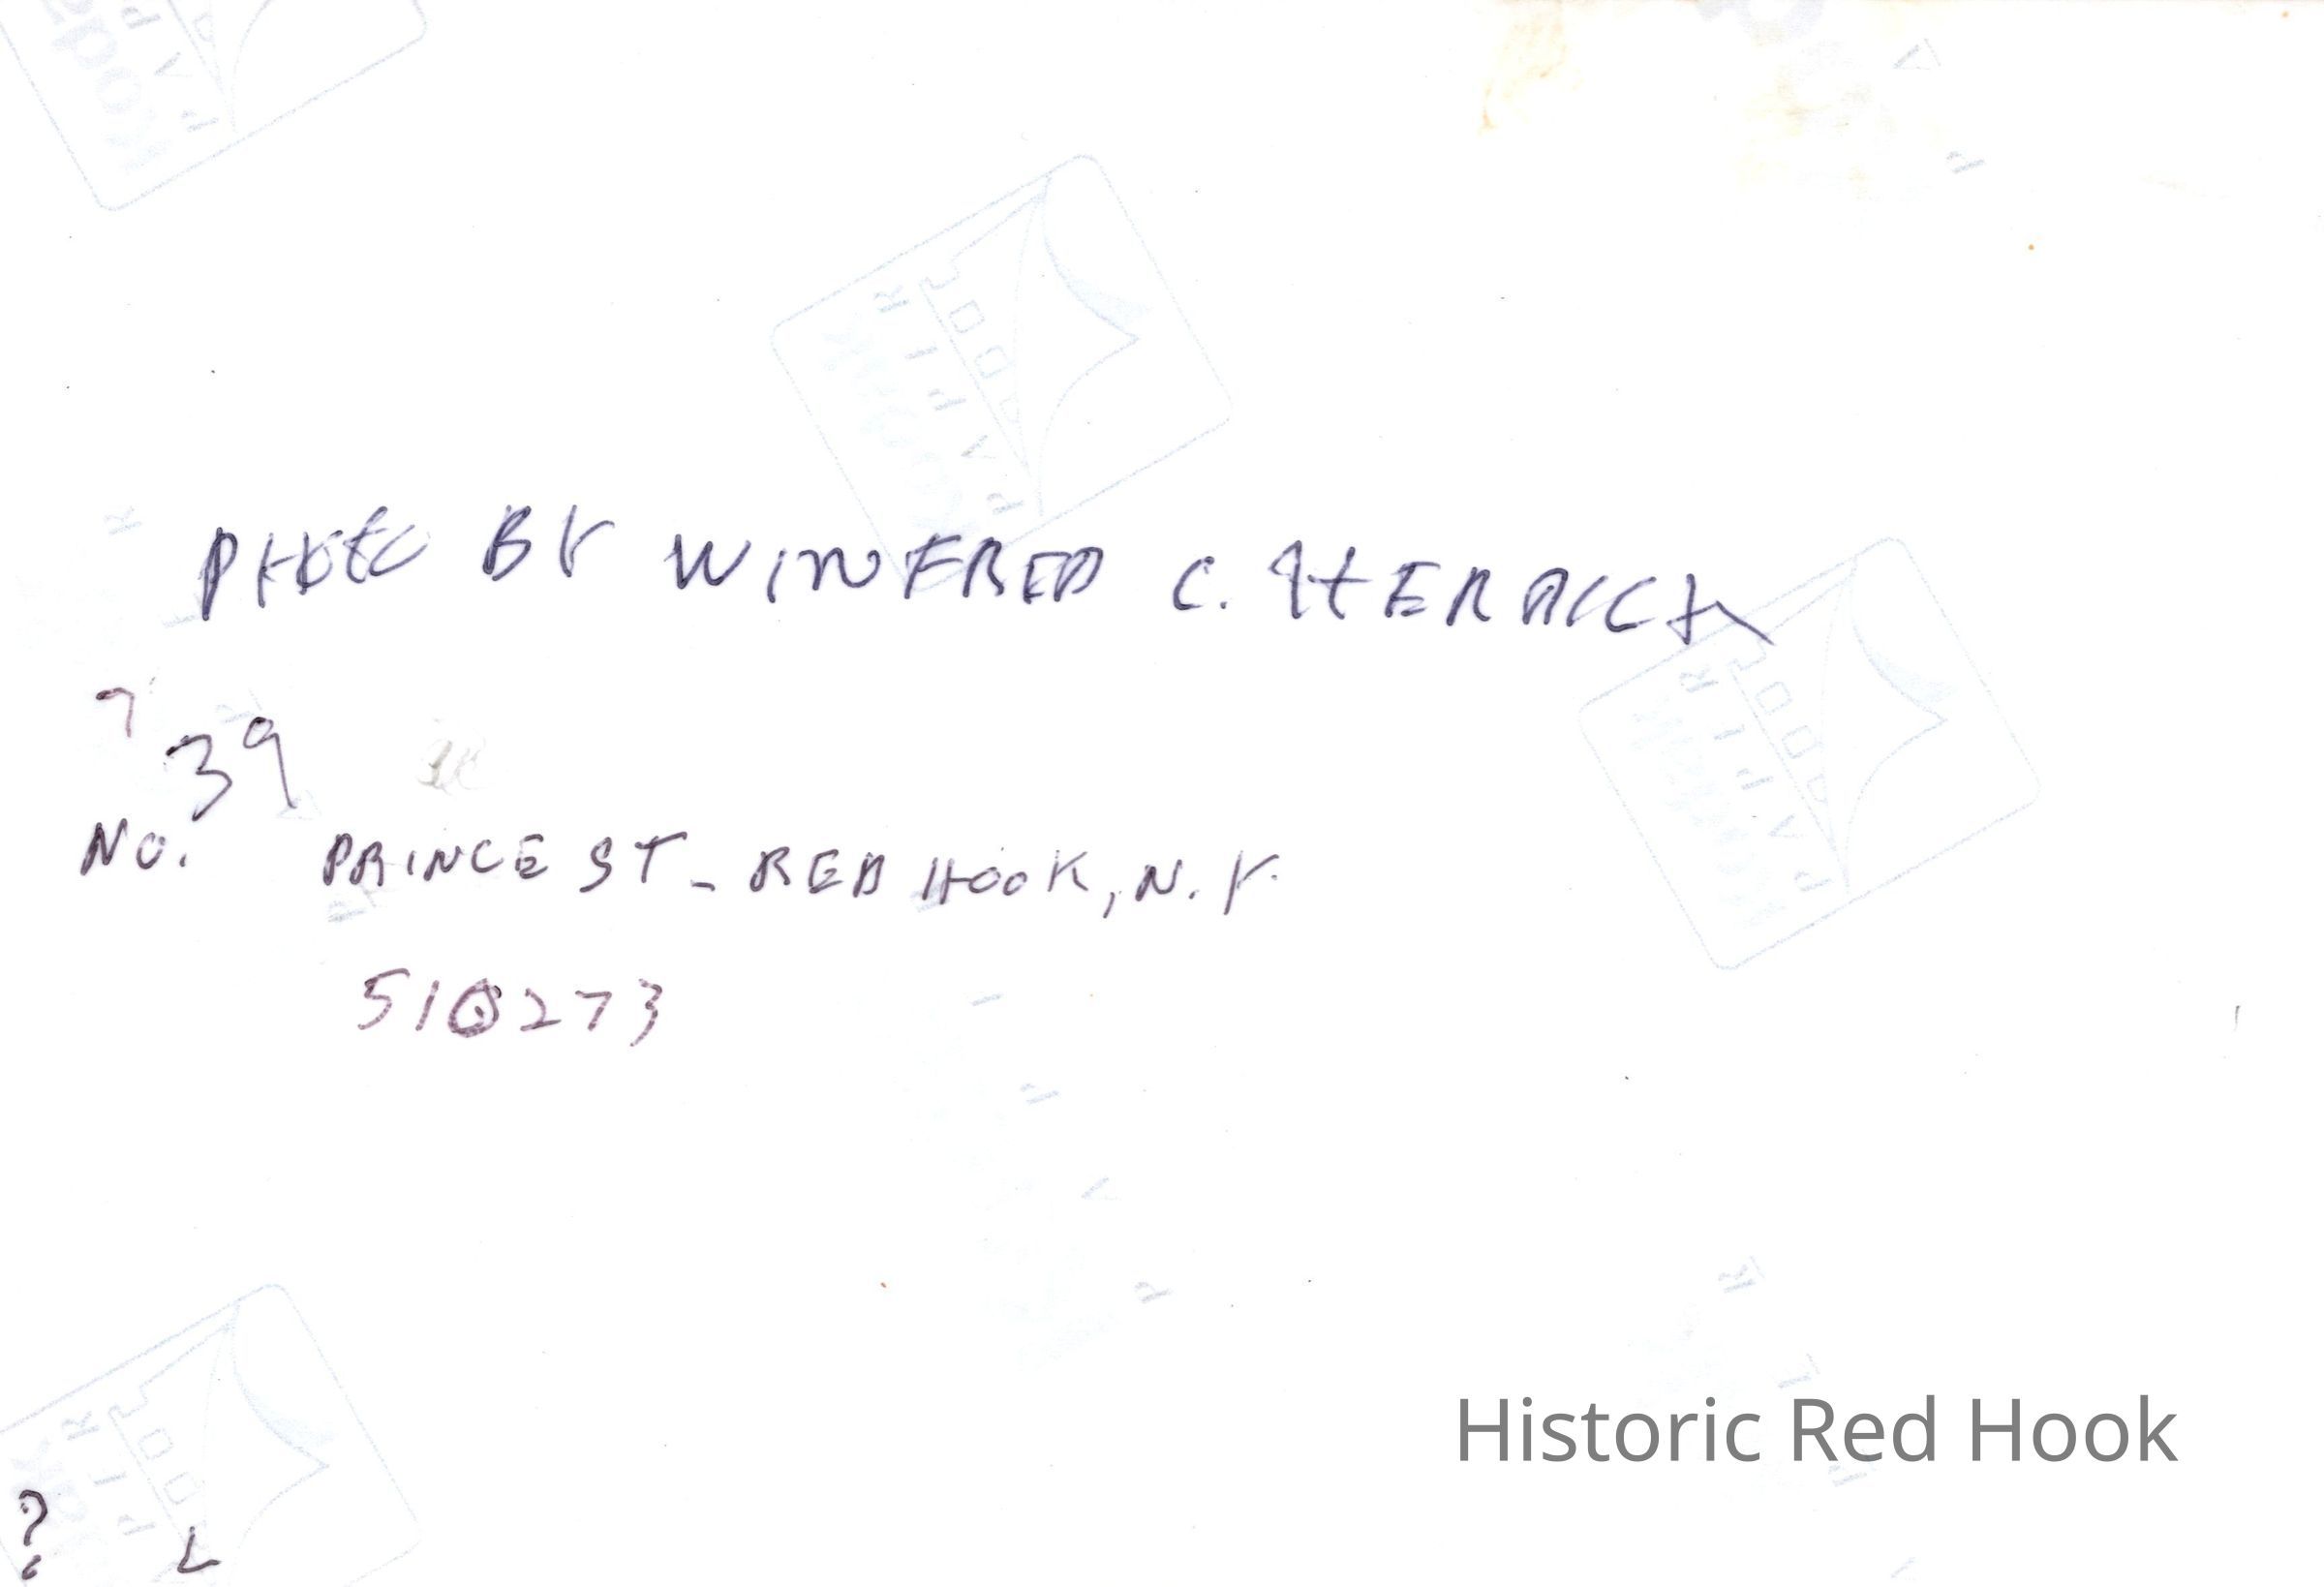 PHOTO BY WINFRED C. HERRICK
?
39
NO. PRINCE ST - RED HOOK, N.Y.
510273
Historic Red Hook
? L